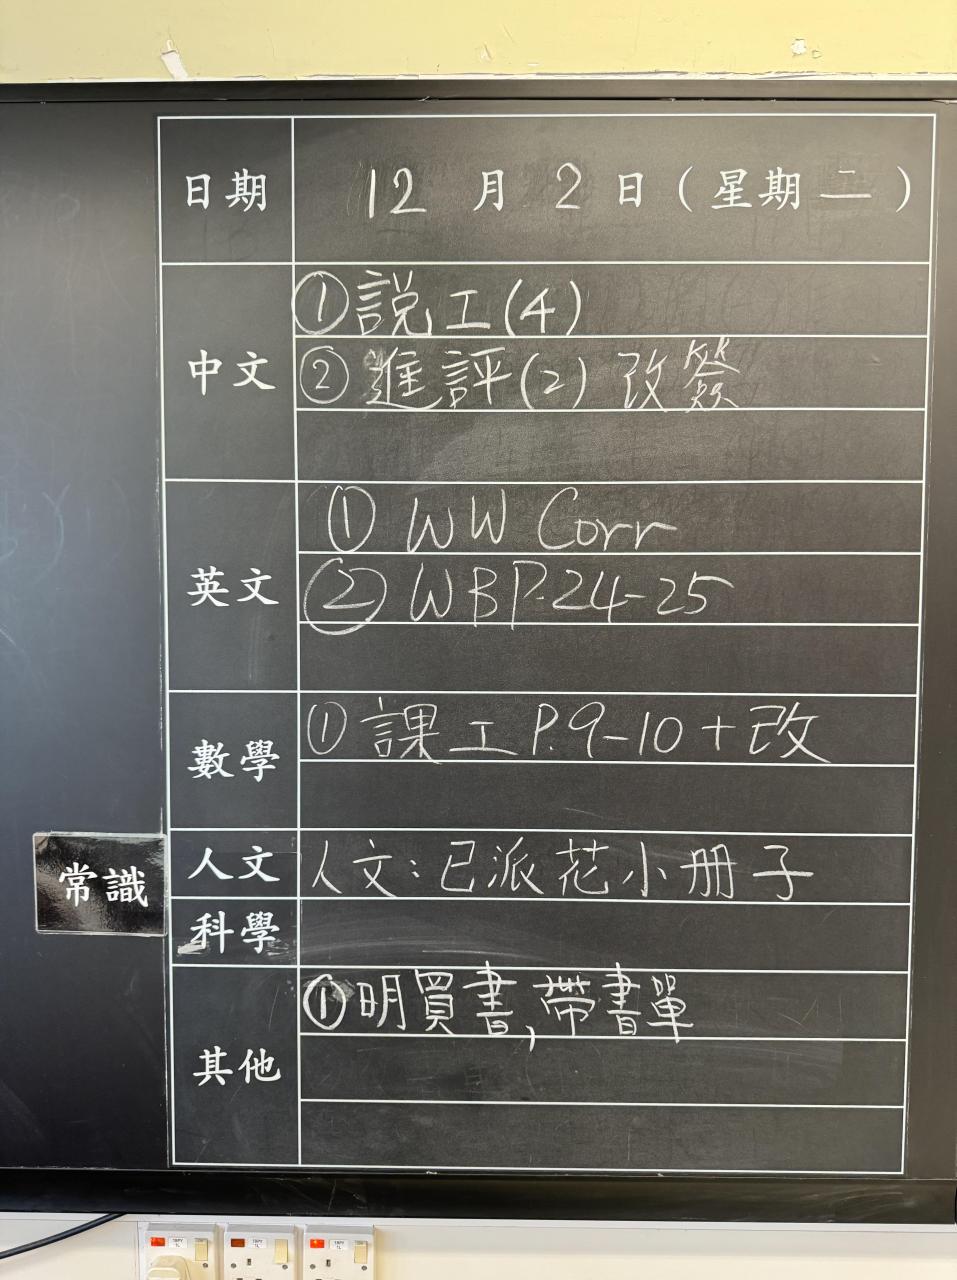 日期 12 月 2 日 (星期 二 )
中文
①說工(4)
② 進評(2) 改簽
英文
① WW Corr
② WB P.24-25
數學
① 課工 P.9-10 + 改
人文 人文：已派花小冊子
常識
科學
其他
①明買書,帶書單